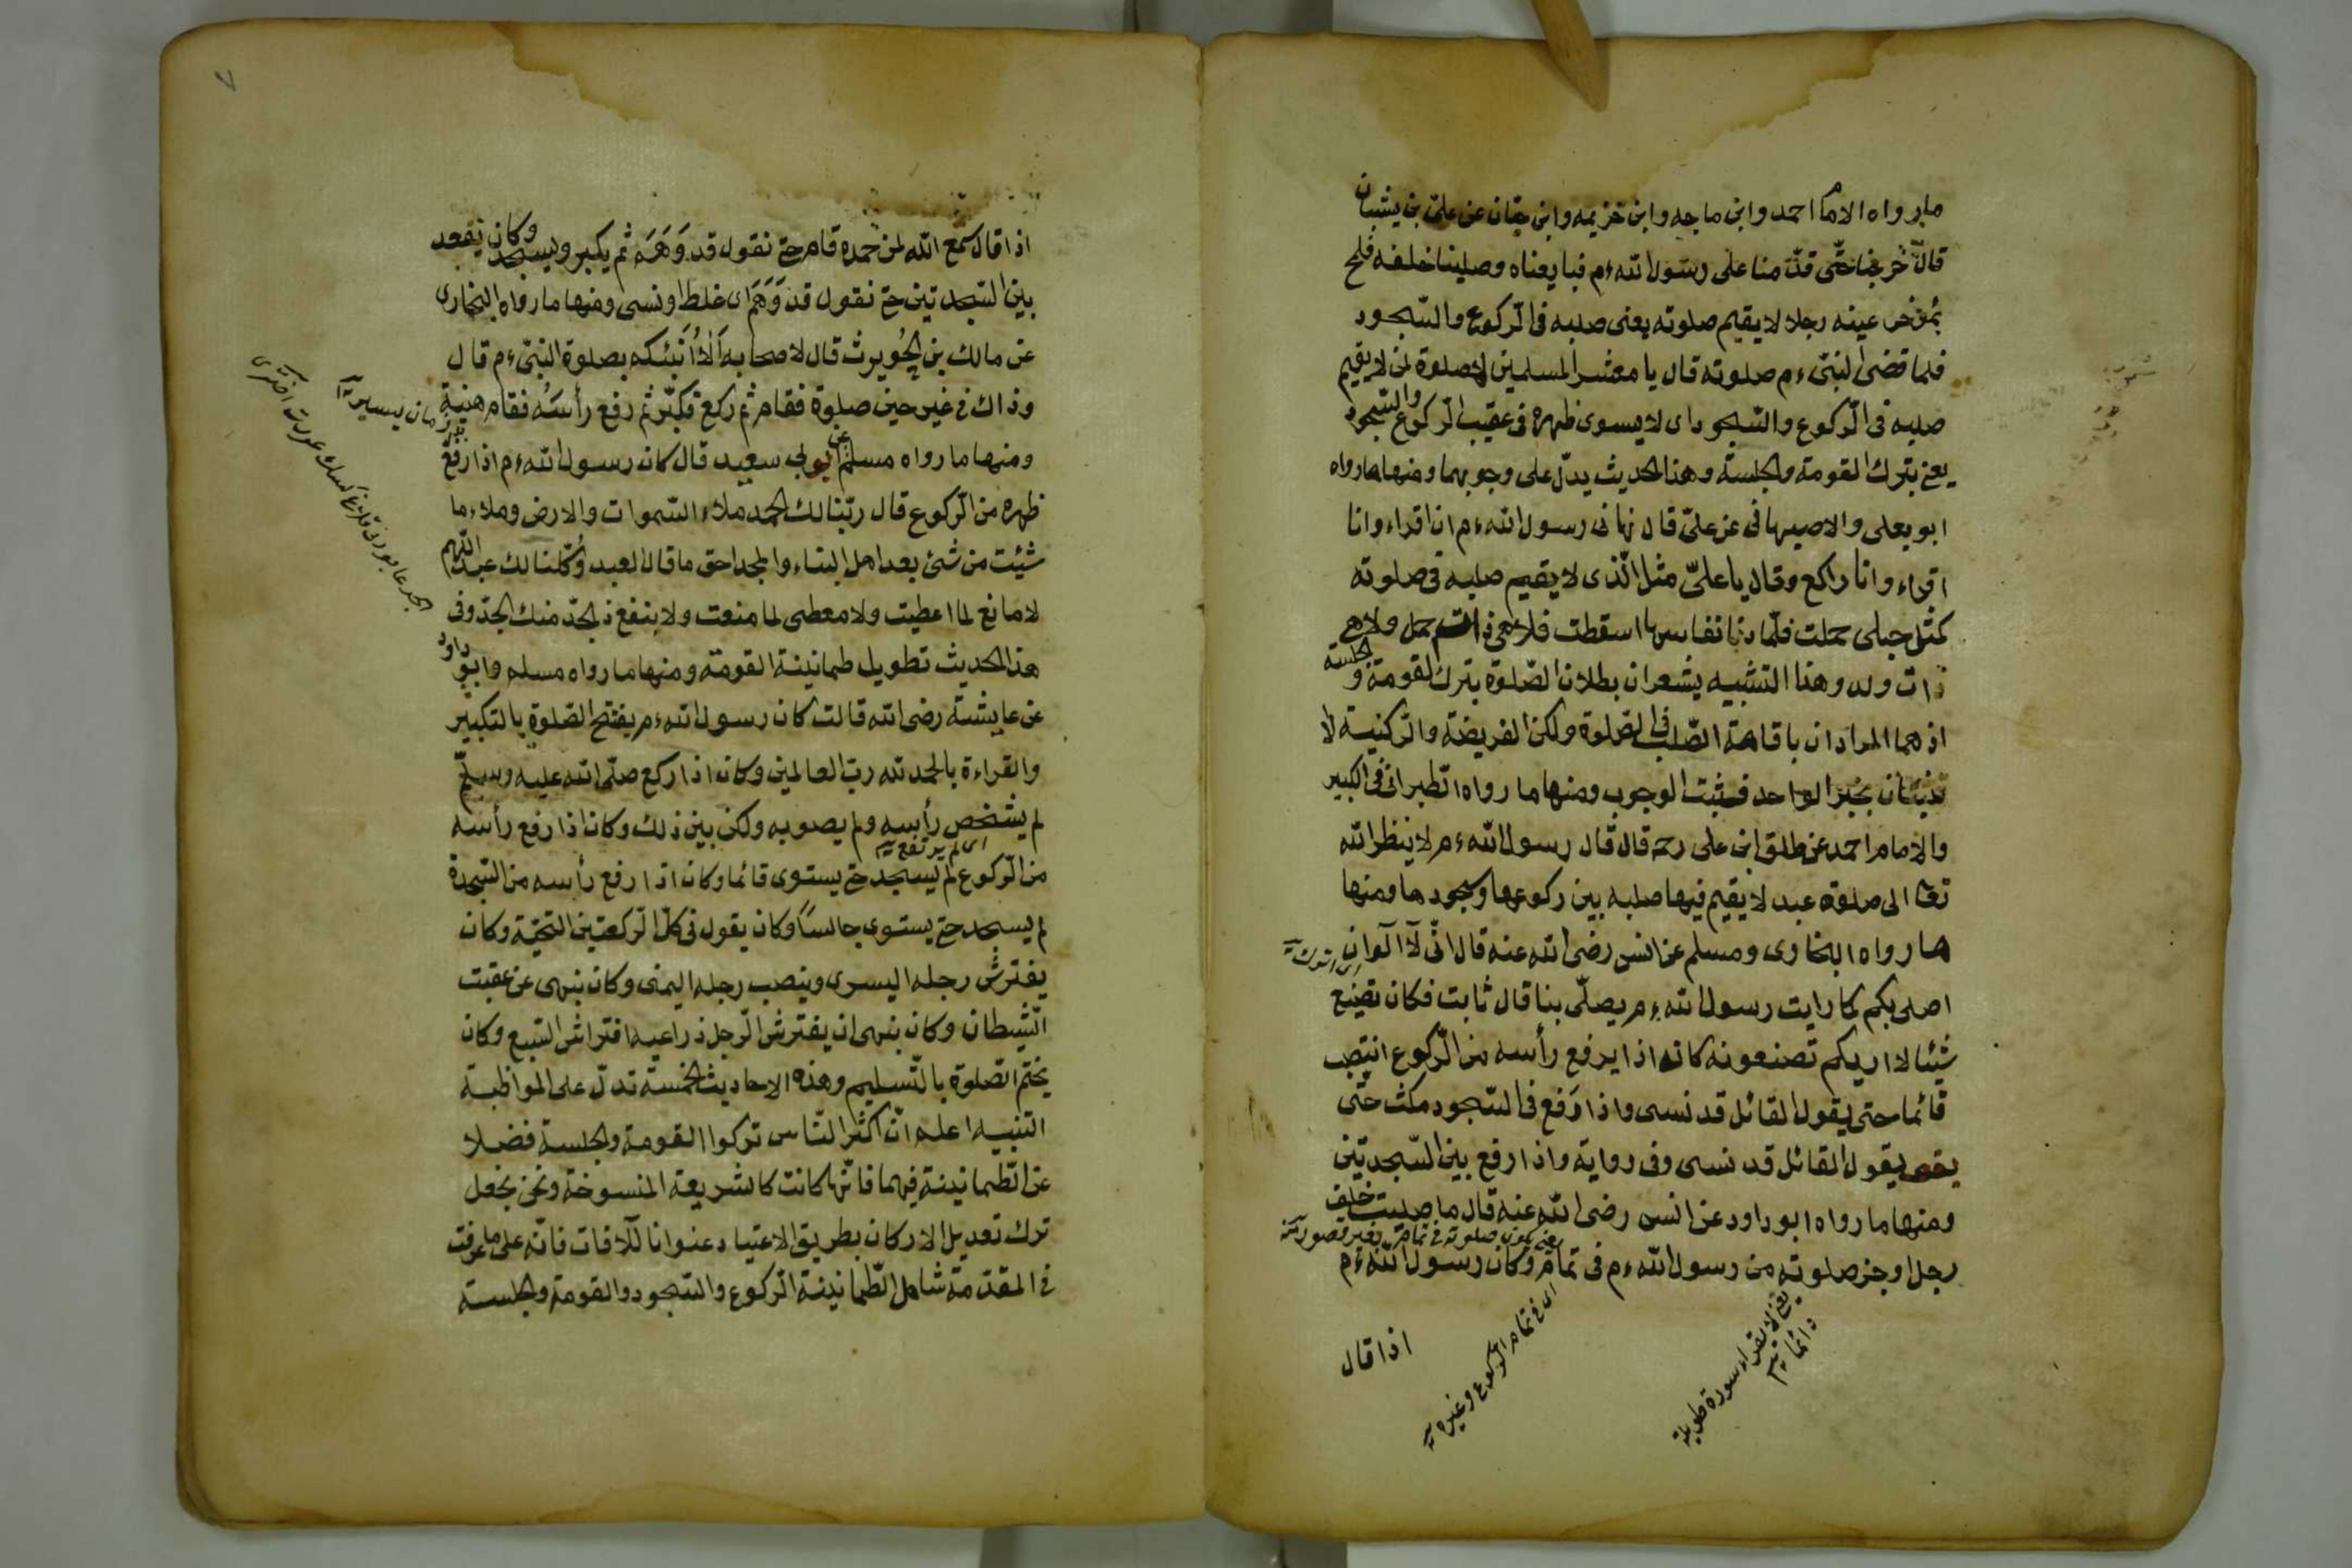 ما رواه الامام احمد وابن ماجه وابن خزيمه وابن حبّان عن علىّ بن يشبان
قال خرجنا حتّى قدّمنا على رسول الله ءم فبايعناه وصلينا خلفه فلمح
بمؤخر عينه رجلا لا يقيم صلوته يعنى صلبه فى الرّكوع والسّجود
فلما قضى النبىّ ءم صلوته قال يا معشر المسلمين لا صلوة لمن لا يقيم
صلبه فى الرّكوع والسّجود اى لا يسوى ظهره فى عقيب الرّكوع والسّجود
يعنى بترك القومة والجلسة وهذا الحديث يدلّ على وجوبهما ومنها ما رواه
ابو يعلى والاصبهانى عن علىّ قال نهانى رسول الله ءم ان اقراء وانا
اقراء وانا راكع وقال يا علىّ مثل الّذى لا يقيم صلبه فى صلوته
كمثل حبلى حملت فلمّا دنا نفاسها اسقطت فلا هى ذات حمل ولا هى
ذات ولد وهذا التشبيه يشعر ان بطلان الصّلوة بترك القومة والجلسة
اذ هما المرادان باقامة الصّلب فى الصّلوة ولكن الفريضة والرّكنية لا
تثبتان بخبر الواحد فيثبت الوجوب ومنها ما رواه الطبرانى فى الكبير
والامام احمد عن طلق ابن على رحمه قال قال رسول الله ءم لا ينظر الله
تعا الى صلوة عبد لا يقيم فيها صلبه بين ركوعها وسجودها ومنها
ما رواه البخارى ومسلم عن انس رضى الله عنه قال انّى لا آلو ان
اى اترك
اصلى بكم كما رايت رسول الله ءم يصلّى بنا قال ثابت فكان تصنع
شيئا لا اريكم تصنعونه كانه اذا يرفع رأسه من الرّكوع انتصب
قائما حتى يقول القائل قد نسى واذا رَفع فى السّجود مكث حتّى
يقول القائل قد نسى وفى رواية واذا رفع بين السّجدتين
ومنها ما رواه ابو داود عن انس رضى الله عنه قال ما صليت خلف
يعنى يكون صلوته فى تمام بغير قصور
رجل اوجز صلوته من رسول الله ءم فى تمام وكان رسول الله ءم
اى فى تمام الركوع وغيره
يعنى لا يقراء سورة طويلة
دائما
اذا قال
٧
اذا قال سمع الله لمن حمده قام حتى نقول قد وَهَمَ ثم يكبر ويسجد وكان يقعد
بين السّجدتين حتى نقول قد وَهَمَ اى غلط او نسى ومنها ما رواه البخارى
عن مالك بن الحُويرث قال لاصحابه اَلَا اُنَبئكم بصلوة النبىّ ءم قال
وذاك فى غير حين صلوة فقام ثم ركع فكبّر ثم رفع رأسَه فقام هنية
زمان يسير
ومنها ما رواه مسلم عن ابى سعيد قال كان رسول الله ءم اذا رفع
ظهره من الرّكوع قال ربّنا لك الحمد ملاء السّموات والارض وملاء ما
شيئت من شئ بعد اهل الثناء والمجد احق ما قال العبد وكلّنا لك عبد اللّهم
لا مانع لما اعطيت ولا معطى لما منعت ولا ينفع ذ الجدّ منك الجدّ وفى
هذا الحديث تطويل طمانينة القومة ومنها ما رواه مسلم وابو داود
عن عايشة رضى الله قالت كان رسول الله ءم يفتح الصّلوة بالتكبير
والقراءة بالحمد لله ربّ العالمين وكان اذا ركع صلّى الله عليه وسلّم
لم يشخص رأسه ولم يصوبه ولكن بين ذلك وكان اذا رفع رأسه
اى لم يرتفع
من الرّكوع لم يسجد حتى يستوى قائما وكان اذا رفع رأسه من السّجدة
لم يسجد حتى يستوى جالسًا وكان يقول فى كلّ الرّكعتين التحيّة وكان
يفترش رجله اليسرى وينصب رجله اليمنى وكان ينهى عن عقبت
الشّيطان وكان ينهى ان يفترش الرّجل ذراعيه افتراش السّبع وكان
يختم الصّلوة بالتّسليم وهذه الاحاديث الخمسة تدلّ على المواظبة
التنبيه اعلم انّ اكثر النّاس تركوا القومة والجلسة فضلا
عن الطّمانينة فيهما فانّها كانت كالشريعة المنسوخة ونحن نجعل
ترك تعديل الاركان بطريق الاعتياد عنوانا للآفات فانّه على ما عرفت
فى المقدّمة شامل لطّمانينة الرّكوع والسّجود والقومة والجلسة